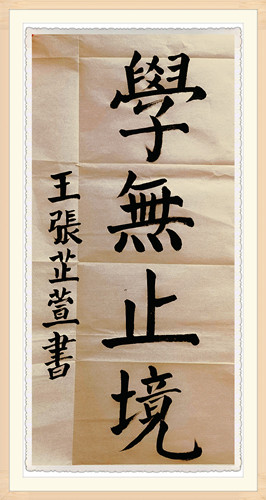 學無止境
王張芷萱書